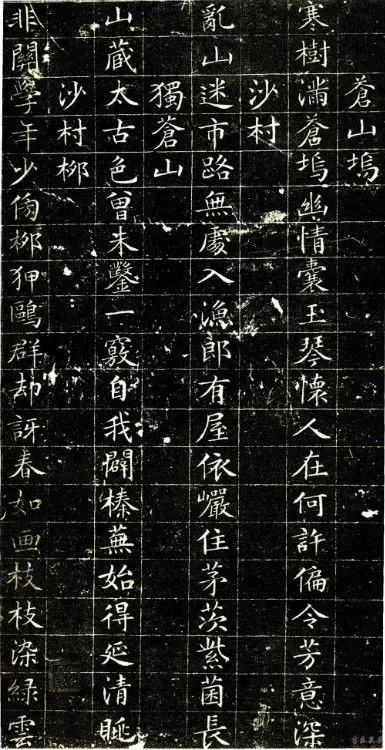 蒼山塢
寒樹滿蒼塢幽情囊玉琴懷人在何許偏令芳意深
沙村
亂山迷市路無處入漁郎有屋依巖住茅茨紫菌長
獨蒼山
山蔵太古色曾未鑿一竅自我闢榛蕪始得延清眺
沙村柳
非關學年少傍柳狎鷗群却訝春如画枝枝染綠雲